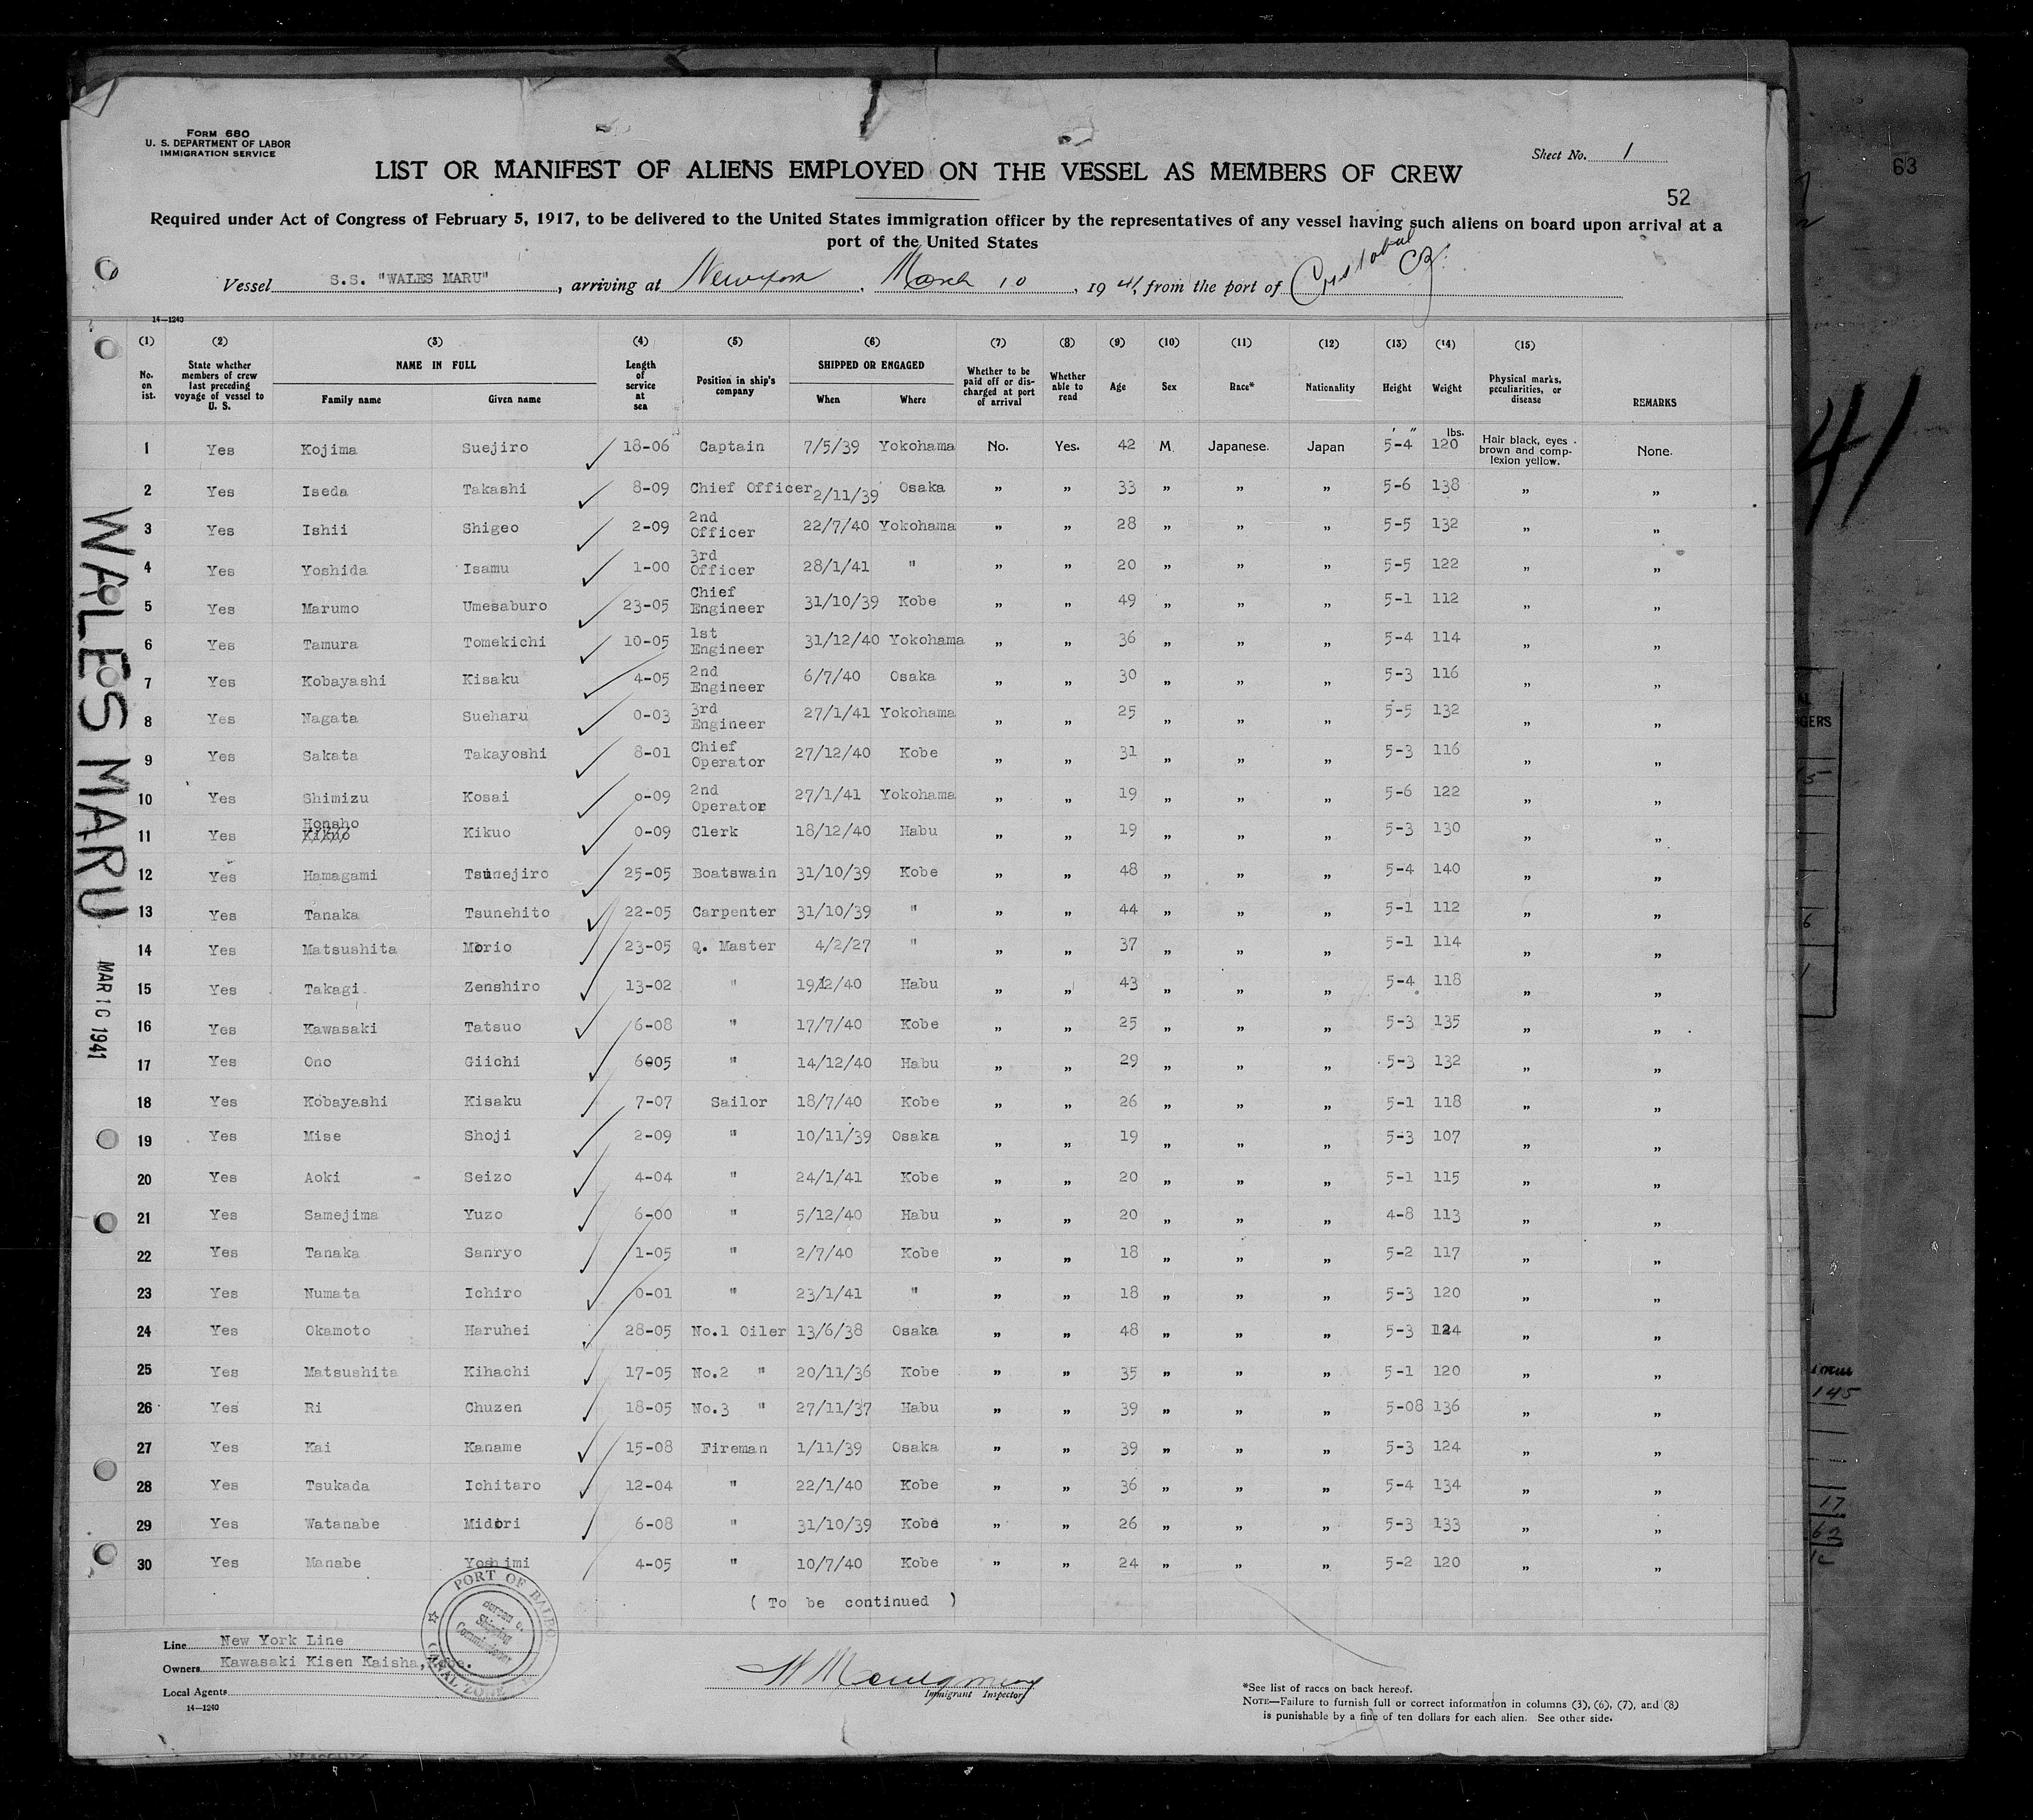 FORM 680
U. S. DEPARTMENT OF LABOR
IMMIGRATION SERVICE
Sheet No. 1
63
LIST OR MANIFEST OF ALIENS EMPLOYED ON THE VESSEL AS MEMBERS OF CREW
52
Required under Act of Congress of February 5, 1917, to be delivered to the United States immigration officer by the representatives of any vessel having such aliens on board upon arrival at a
port of the United States
Vessel S.S. "WALES MARU", arriving at New York, March 10, 1941, from the port of Cristobal CZ.
14—1240
(1) (2) (3) (4) (5) (6) (7) (8) (9) (10) (11) (12) (13) (14) (15)
No. on ist. State whether members of crew last preceding voyage of vessel to U. S. NAME IN FULL Family name Given name Length of service at sea Position in ship's company SHIPPED OR ENGAGED When Where Whether to be paid off or discharged at port of arrival Whether able to read Age Sex Race* Nationality Height Weight Physical marks, peculiarities, or disease REMARKS
1 Yes Kojima Suejiro 18-06 Captain 7/5/39 Yokohama No. Yes. 42 M Japanese. Japan 5-4 120 lbs. Hair black, eyes brown and complexion yellow. None.
2 Yes Iseda Takashi 8-09 Chief Officer 2/11/39 Osaka „ „ 33 „ „ „ 5-6 138 „ „
3 Yes Ishii Shigeo 2-09 2nd Officer 22/7/40 Yokohama „ „ 28 „ „ „ 5-5 132 „ „
4 Yes Yoshida Isamu 1-00 3rd Officer 28/1/41 " „ „ 20 „ „ „ 5-5 122 „ „
5 Yes Marumo Umesaburo 23-05 Chief Engineer 31/10/39 Kobe „ „ 49 „ „ „ 5-1 112 „ „
6 Yes Tamura Tomekichi 10-05 1st Engineer 31/12/40 Yokohama „ „ 36 „ „ „ 5-4 114 „ „
7 Yes Kobayashi Kisaku 4-05 2nd Engineer 6/7/40 Osaka „ „ 30 „ „ „ 5-3 116 „ „
8 Yes Nagata Sueharu 0-03 3rd Engineer 27/1/41 Yokohama „ „ 25 „ „ „ 5-5 132 „ „
9 Yes Sakata Takayoshi 8-01 Chief Operator 27/12/40 Kobe „ „ 31 „ „ „ 5-3 116 „ „
10 Yes Shimizu Kosai 0-09 2nd Operator 27/1/41 Yokohama „ „ 19 „ „ „ 5-6 122 „ „
11 Yes Honsho Kikuo 0-09 Clerk 18/12/40 Habu „ „ 19 „ „ „ 5-3 130 „ „
12 Yes Hamagami Tsunejiro 25-05 Boatswain 31/10/39 Kobe „ „ 48 „ „ „ 5-4 140 „ „
13 Yes Tanaka Tsunehito 22-05 Carpenter 31/10/39 " „ „ 44 „ „ „ 5-1 112 „ „
14 Yes Matsushita Morio 23-05 Q. Master 4/2/27 " „ „ 37 „ „ „ 5-1 114 „ „
15 Yes Takagi Zenshiro 13-02 " 19/12/40 Habu „ „ 43 „ „ „ 5-4 118 „ „
16 Yes Kawasaki Tatsuo 6-08 " 17/7/40 Kobe „ „ 25 „ „ „ 5-3 135 „ „
17 Yes Ono Giichi 6-05 " 14/12/40 Habu „ „ 29 „ „ „ 5-3 132 „ „
18 Yes Kobayashi Kisaku 7-07 Sailor 18/7/40 Kobe „ „ 26 „ „ „ 5-1 118 „ „
19 Yes Mise Shoji 2-09 " 10/11/39 Osaka „ „ 19 „ „ „ 5-3 107 „ „
20 Yes Aoki Seizo 4-04 " 24/1/41 Kobe „ „ 20 „ „ „ 5-1 115 „ „
21 Yes Samejima Yuzo 6-00 " 5/12/40 Habu „ „ 20 „ „ „ 4-8 113 „ „
22 Yes Tanaka Sanryo 1-05 " 2/7/40 Kobe „ „ 18 „ „ „ 5-2 117 „ „
23 Yes Numata Ichiro 0-01 " 23/1/41 " „ „ 18 „ „ „ 5-3 120 „ „
24 Yes Okamoto Haruhei 28-05 No.1 Oiler 13/6/38 Osaka „ „ 48 „ „ „ 5-3 124 „ „
25 Yes Matsushita Kihachi 17-05 No.2 " 20/11/36 Kobe „ „ 35 „ „ „ 5-1 120 „ „
26 Yes Ri Chuzen 18-05 No.3 " 27/11/37 Habu „ „ 39 „ „ „ 5-08 136 „ „
27 Yes Kai Kaname 15-08 Fireman 1/11/39 Osaka „ „ 39 „ „ „ 5-3 124 „ „
28 Yes Tsukada Ichitaro 12-04 " 22/1/40 Kobe „ „ 36 „ „ „ 5-4 134 „ „
29 Yes Watanabe Midori 6-08 " 31/10/39 Kobe „ „ 26 „ „ „ 5-3 133 „ „
30 Yes Manabe Yoshimi 4-05 " 10/7/40 Kobe „ „ 24 „ „ „ 5-2 120 „ „
( To be continued )
WALES MARU
MAR 10 1941
41
Line New York Line
Owners Kawasaki Kisen Kaisha, Kobe.
Local Agents
14—1240
PORT OF BALBOA
Bureau o.
Shipping
Commissioner
CANAL ZONE
Immigrant Inspector
*See list of races on back hereof.
NOTE—Failure to furnish full or correct information in columns (3), (6), (7), and (8)
is punishable by a fine of ten dollars for each alien. See other side.
GERS
145
17
62